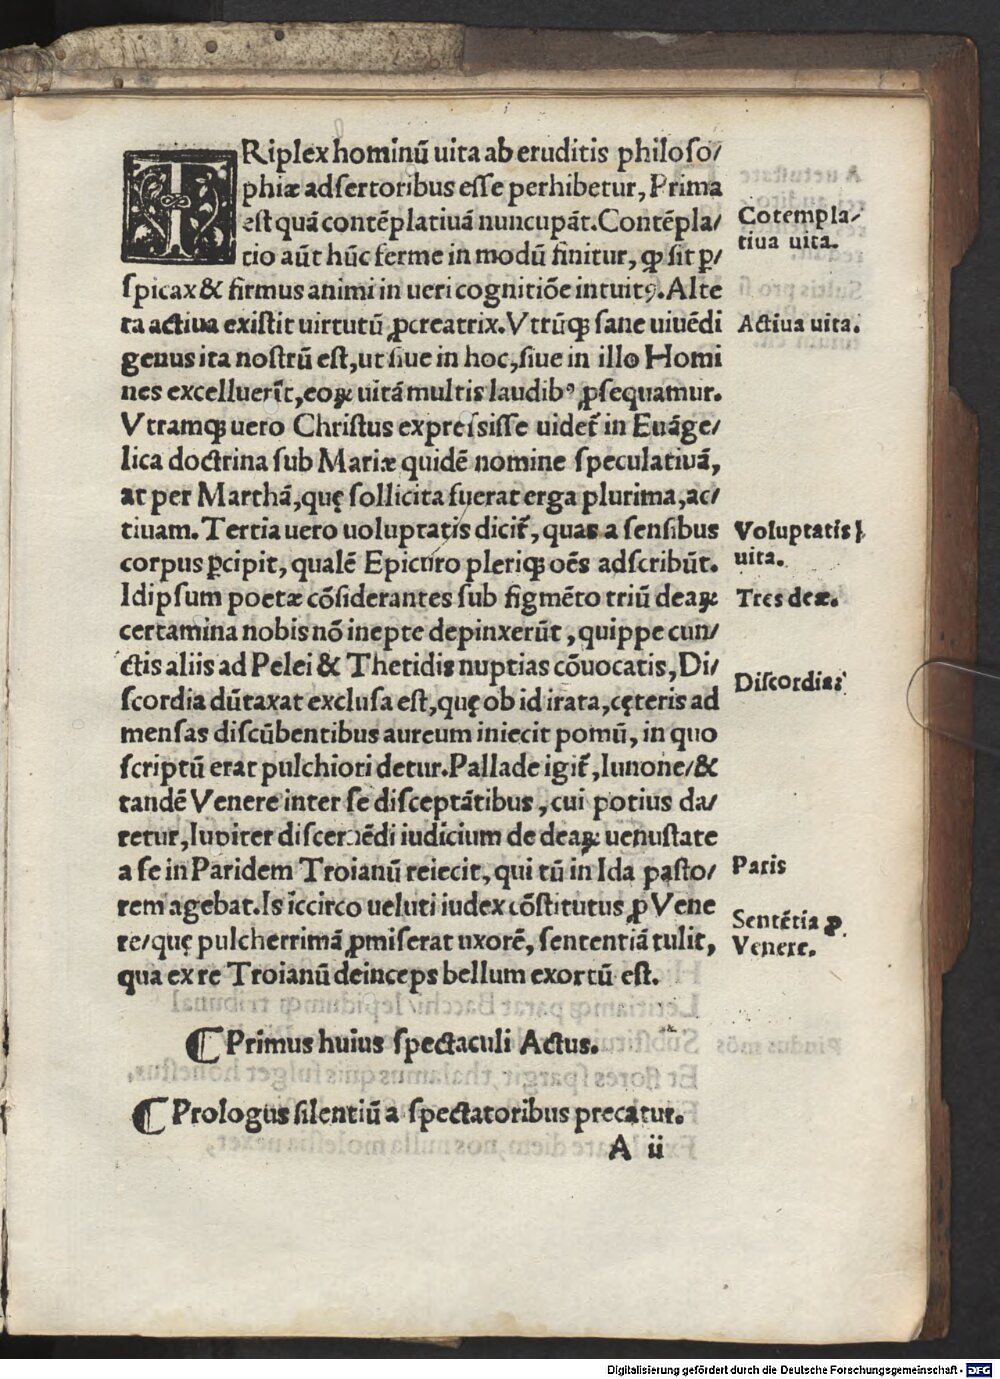 TRiplex hominū uita ab eruditis philoso/
phiæ adsertoribus esse perhibetur, Prima
est quā contēplatiuā nuncupāt. Contēpla/
tio aūt hūc ferme in modū finitur, ꝙ sit ꝑ/
spicax & firmus animi in ueri cognitiōe intuitꝰ. Alte
ra actiua existit uirtutū ꝓcreatrix. Vtrūqꝫ sane uiuēdi
genus ita nostrū est, ut siue in hoc, siue in illo Homi
nes excelluerīt, eoꝝ uitā multis laudibꝰ ꝓsequamur.
Vtramqꝫ uero Christus expressisse uidet̄ in Euāge/
lica doctrina sub Mariæ quidē nomine speculatiuā,
at per Marthā, quę sollicita fuerat erga plurima, ac/
tiuam. Tertia uero uoluptatis dicit̄, quas a sensibus
corpus ꝑcipit, qualē Epicuro pleriqꝫ oēs adscribūt.
Idipsum poetæ cōsiderantes sub figmēto triū deaꝝ
certamina nobis nō inepte depinxerūt, quippe cun/
ctis aliis ad Pelei & Thetidis nuptias cōuocatis, Di/
scordia dūtaxat exclusa est, quę ob id irata, cęteris ad
mensas discūbentibus aureum iniecit pomū, in quo
scriptū erat pulchiori detur. Pallade igit̄, Iunone/&
tandē Venere inter se disceptātibus, cui potius da/
retur, Iupiter discernēdi iudicium de deaꝝ uenustate
a se in Paridem Troianū reiecit, qui tū in Ida pasto/
rem agebat. Is iccirco ueluti iudex cōstitutus ꝓ Vene
re/quę pulcherrimā ꝓmiserat uxorē, sententiā tulit,
qua ex re Troianū deinceps bellum exortū est.
Cotempla/
tiua uita.
Actiua uita.
Voluptatis
uita.
Tres deæ.
Discordia:
Paris
Sentētia ꝓ
Venere.
⸿ Primus huius spectaculi Actus.
⸿ Prologus silentiū a spectatoribus precatur.
A ii
Digitalisierung gefördert durch die Deutsche Forschungsgemeinschaft - DFG